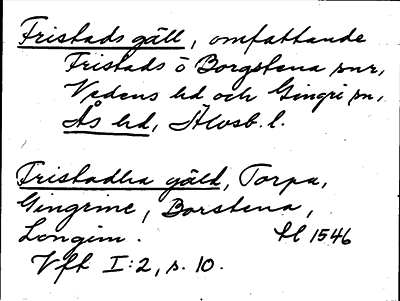 Fristads gäll, omfattande
Fristads o Borgstena snr,
Vedens hd och Gingri sn,
Ås hd, Älvsb. l.
Fristadha gäld, Torpa,
Gingrine, Borstena,
Longim. 1546
Vft I:2, s. 10.